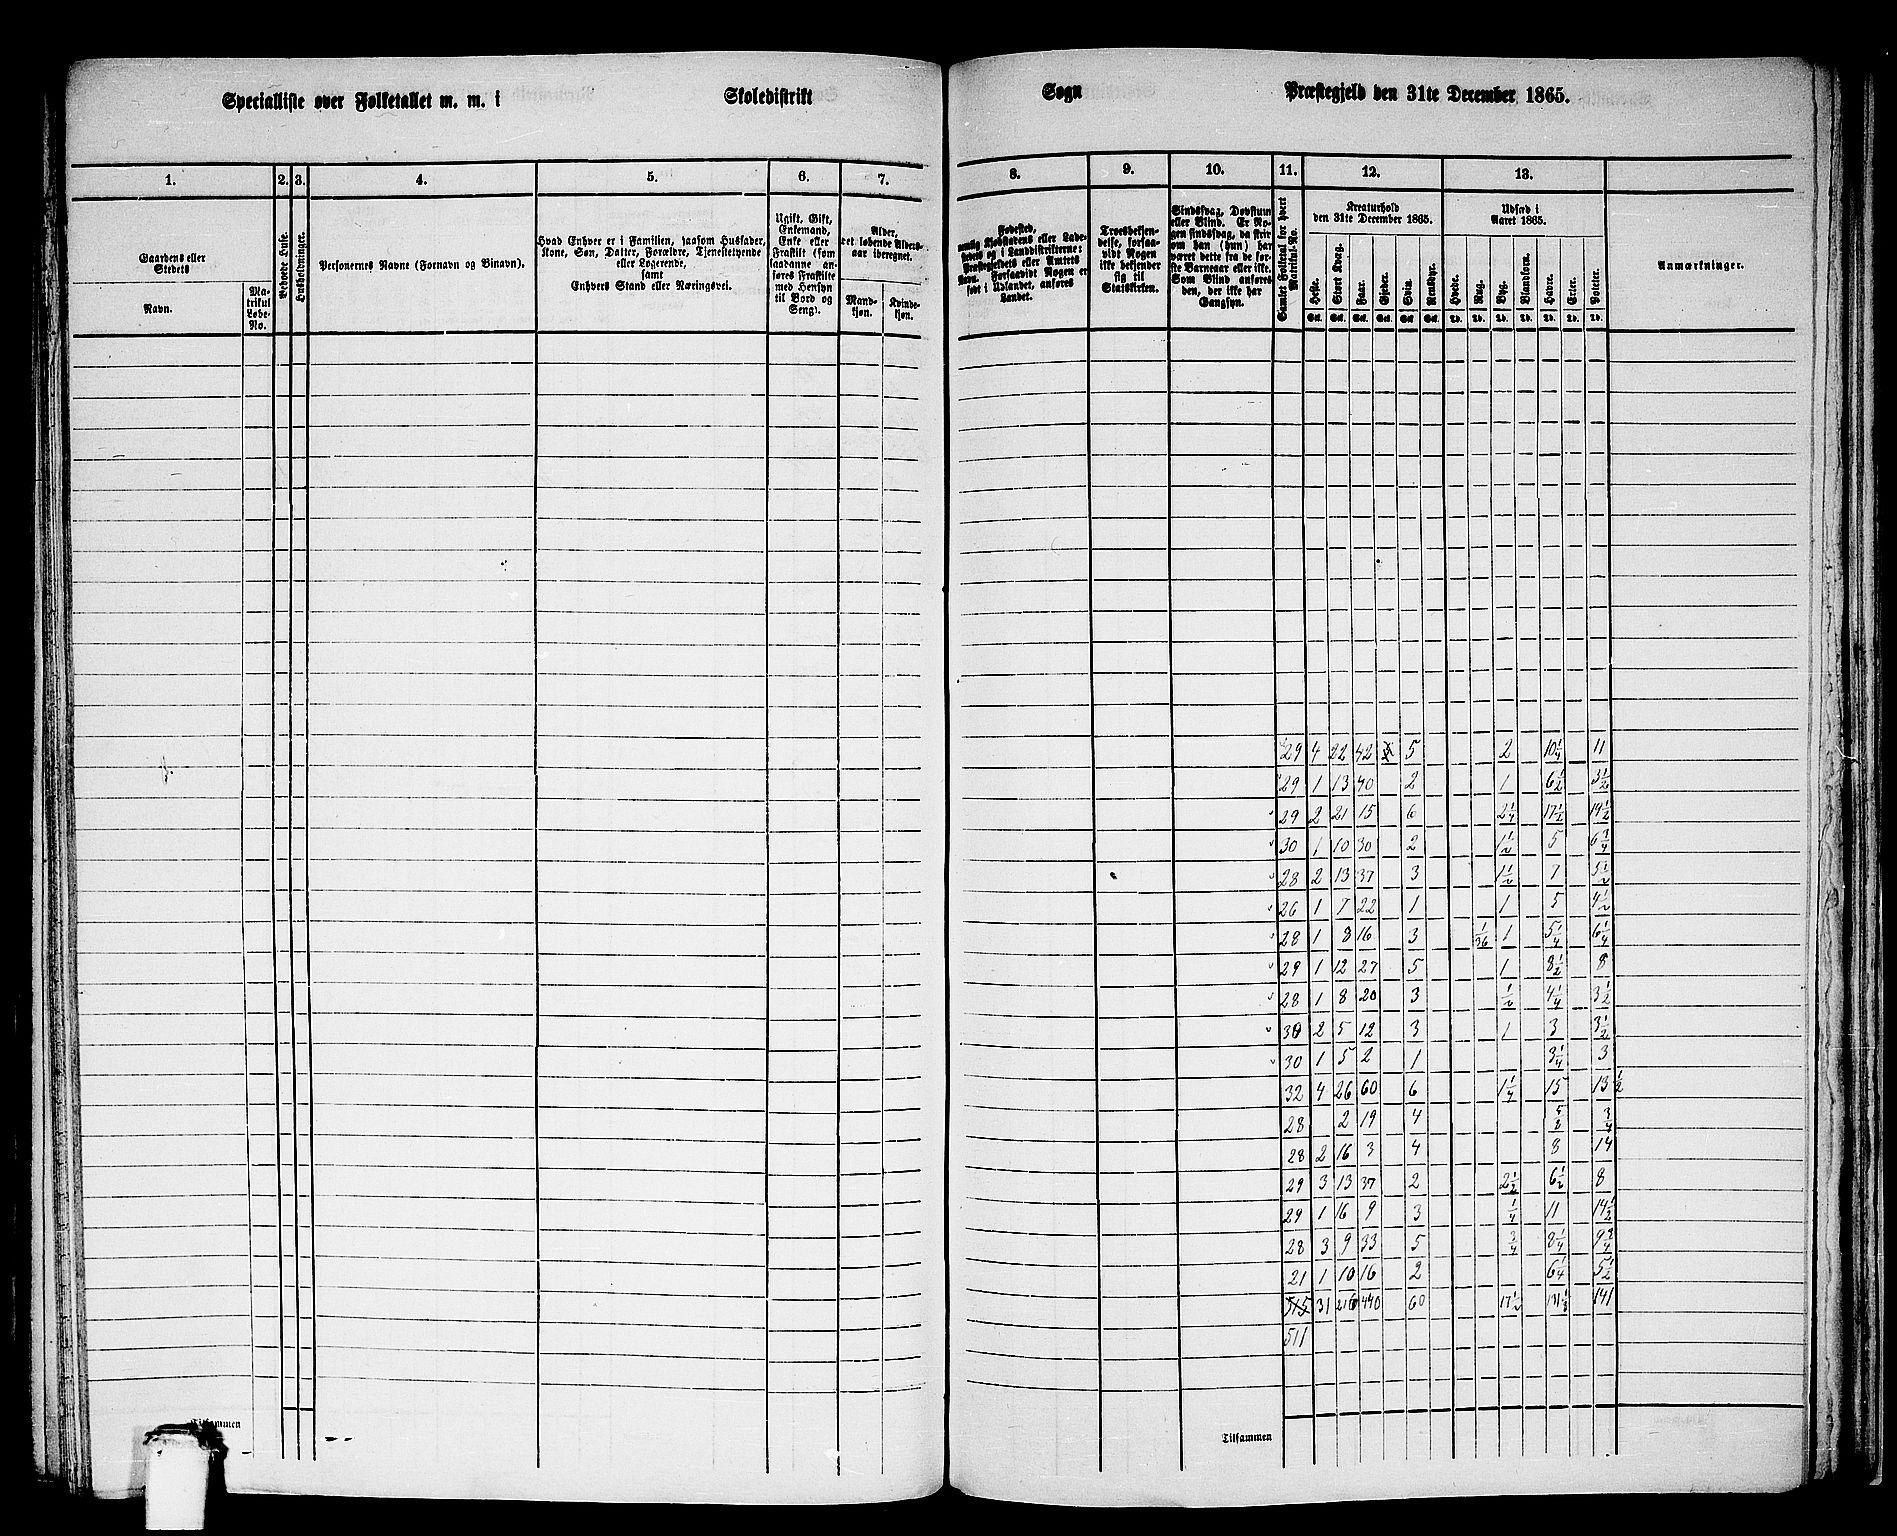 Specialliste over Folketallet m. m. i Skoledistrikt Sogn Præstegjeld den 31te December 1865.
1. 2. 3. 4. 5. 6. 7. 8. 9. 10. 11. 12. 13.
Gaardens eller Stedets
Navn.
Matrikul Løbe-No.
Beboede Huse.
Husholdninger.
Personernes Navne (Fornavn og Binavn).
Hvad Enhver er i Familien, saasom Husfader,
Kone, Søn, Datter, Forældre, Tjenestetyende
eller Logerende,
samt
Enhvers Stand eller Næringsvei.
Ugift, Gift,
Enkemand,
Enke eller
Fraskilt (som
saadanne anføres Fraskilte
med Hensyn
til Bord og
Seng).
Alder,
det løbende Alders-
aar iberegnet.
Mandkjøn.
Kvindekjøn.
Fødested,
nemlig Kjøbstadens eller Lade-
stedets og i Landdistrikterne:
Præstegjeldets eller Amtets
Navn. Forsaavidt Nogen er
født i Udlandet, anføres
Landet.
Troesbekjen-
delse, forsaa-
vidt Nogen
ikke bekjender
sig til
Statskirken.
Sindssvag, Døvstum
eller Blind. Er No-
gen sindssvag, da skriv
om han (hun) har
været dette fra de før-
ste Barneaar eller ikke.
Som Blind anføres
den, der ikke har
Gangsyn.
Samlet Folketal for hvert Matrikul-No.
Kreaturhold
den 31te December 1865.
Heste. Stort Kvæg. Faar. Gjeder. Sviin. Rensdyr.
Stk. Stk. Stk. Stk. Stk. Stk.
Udsæd i
Aaret 1865.
Hvede. Rug. Byg. Blandkorn. Havre. Erter. Poteter.
Td. Td. Td. Td. Td. Td. Td.
Anmærkninger.
29 4 22 42 5 2 10 1/4 11
29 1 13 40 2 1 6 1/2 3 1/2
29 2 21 15 6 2 1/4 17 1/2 19 1/2
30 1 10 30 2 1 1/2 5 6 3/4
28 2 13 37 3 1 1/2 7 5 1/2
26 1 7 22 1 1 5 4 1/2
28 1 8 16 3 1/36 1 5 1/4 6 1/4
29 1 12 27 5 1 8 1/2 8
28 1 8 20 3 1/2 4 1/4 3 1/2
30 2 5 12 3 1 3 3 1/2
30 1 5 2 1 3 1/4 3
32 4 26 60 6 1 1/4 15 13 1/2
28 2 19 4 5/8 3/4
28 2 16 3 4 8 14
29 3 13 37 2 2 1/2 6 1/2 8
29 1 16 9 3 1/4 11 14 1/2
28 3 9 33 5 3/4 8 1/4 9 3/4
21 1 10 16 2 6 1/4 5 1/2
515 31 216 440 60 17 1/2 131 1/8 141
511
Tilsammen
Tilsammen